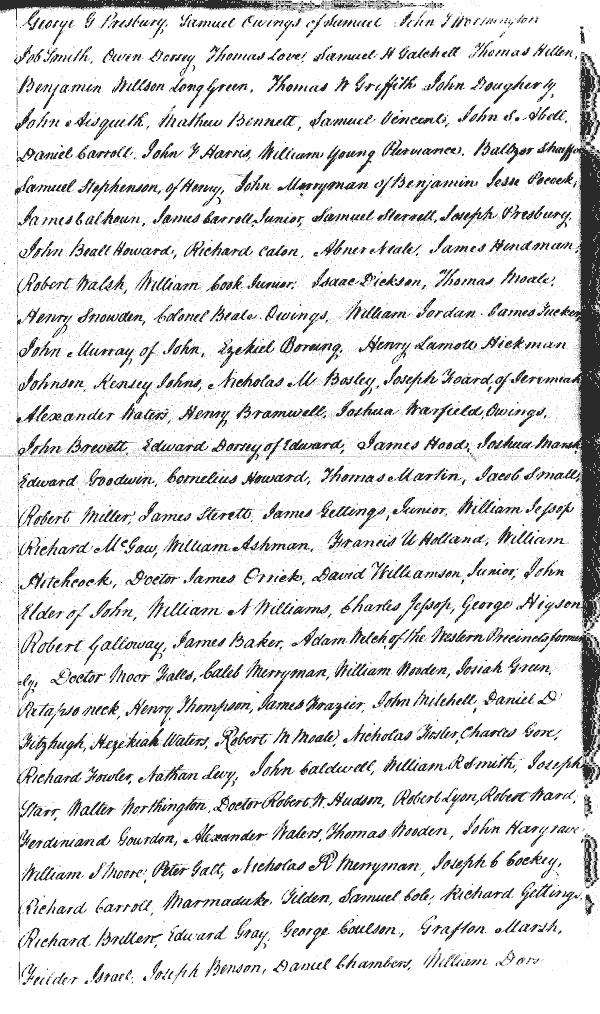 George G Presbury, Samuel Owings of Samuel John T Worthington
Job Smith, Owen Dorsey Thomas Love, Samuel H Gatchell Thomas Hillen,
Benjamin Willson Long Green, Thomas W Griffith John Dougherty
John Aisquith, Mathew Bennett, Samuel Vincent, John S. Abell,
Daniel Carroll, John F Harris, William Young Purviance, Baltzer
Samuel Stephenson, of Henry, John Merryman of Benjamin Jesse Pocock,
James Calhoun, James Carroll, Junior, Samuel Sterrett, Joseph Presbury,
John Beall Howard, Richard Caton, Abner Neale, James Hindman,
Robert Walsh, William Cook Junior, Isaac Dickson, Thomas Moale,
Henry Snowden, Colonel Beale Owings, William Jordan James Tucker,
John Murray of John, Ezekiel Boreing, Henry Lamott Hickman
Johnson, Kensey Johns, Nicholas M Bosley, Joseph Foard, of Jeremiah
Alexander Waters, Henry Bramwell, Joshua Warfield, Owings,
John Brevett, Edward Dorsey of Edward, James Hood, Joshua Marsh
Edward Goodwin, Cornelius Howard, Thomas Martin, Jacob Small,
Robert Miller, James Sterett, James Gettings, Junior, William Jessop
Richard McGaw, William Ashman, Francis U Holland, William
Hitchcock, Doctor James Orrick, David Williamson, Junior, John
Elder of John, William N Williams, Charles Jessop, George Higson
Robert Galloway, James Baker, Adam Welch, of the Western Precincts former
ly, Doctor Moor Falls, Caleb Merryman, William Wooden, Josiah Green,
Patapso neck, Henry Thompson, James Frazier, John Mitchell, Daniel D
Fitzhugh, Hezekiah Waters, Robert M Moale, Nicholas Foster, Charles Gore,
Richard Fowler, Nathan Levy, John Caldwell, William R Smith, Joseph
Starr, Walter Worthington, Doctor Robert W. Hudson, Robert Lyon, Robert Ward,
Ferdiniand Gourdon, Alexander Waters, Thomas Wooden, John Hargrave
William S Moore, Peter Galt, Nicholas R Merryman, Joseph C Cockey,
Richard Carroll, Marmaduke Tilden, Samuel Cole, Richard Gettings,
Richard Edward Gray, George Coulson, Grafton Marsh,
Feilder Israel, Joseph Benson, Daniel Chambers, William Dors